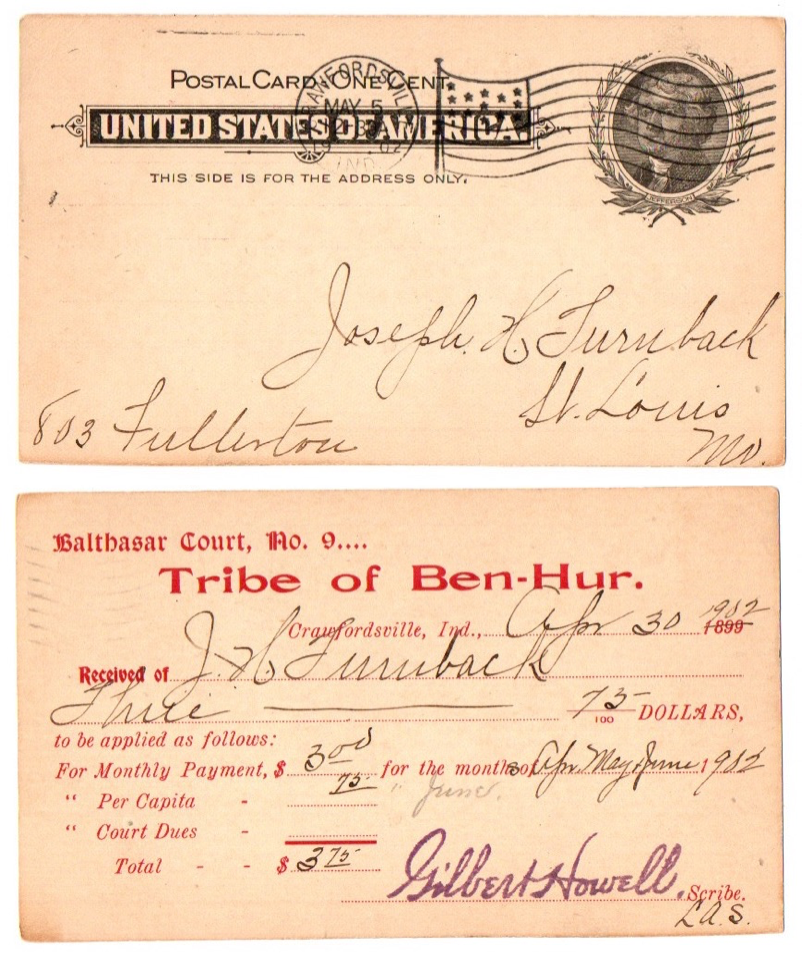 POSTAL CARD - ONE CENT.
UNITED STATES OF AMERICA
THIS SIDE IS FOR THE ADDRESS ONLY.
CRAWFORDSVILLE
MAY 5
IND.
JEFFERSON
Joseph. H. Turnback
St. Louis
803 Fullerton
Mo.
Balthasar Court, No. 9....
Tribe of Ben-Hur.
Crawfordsville, Ind., Apr 30 1902 1899
Received of J. H. Turnback
Three 75/100 DOLLARS,
to be applied as follows:
For Monthly Payment, $ 3.00 for the months Apr. May, June 1902
" Per Capita - 75 " June.
" Court Dues -
Total - - $ 3 75
Gilbert Howell. Scribe.
L.A.S.